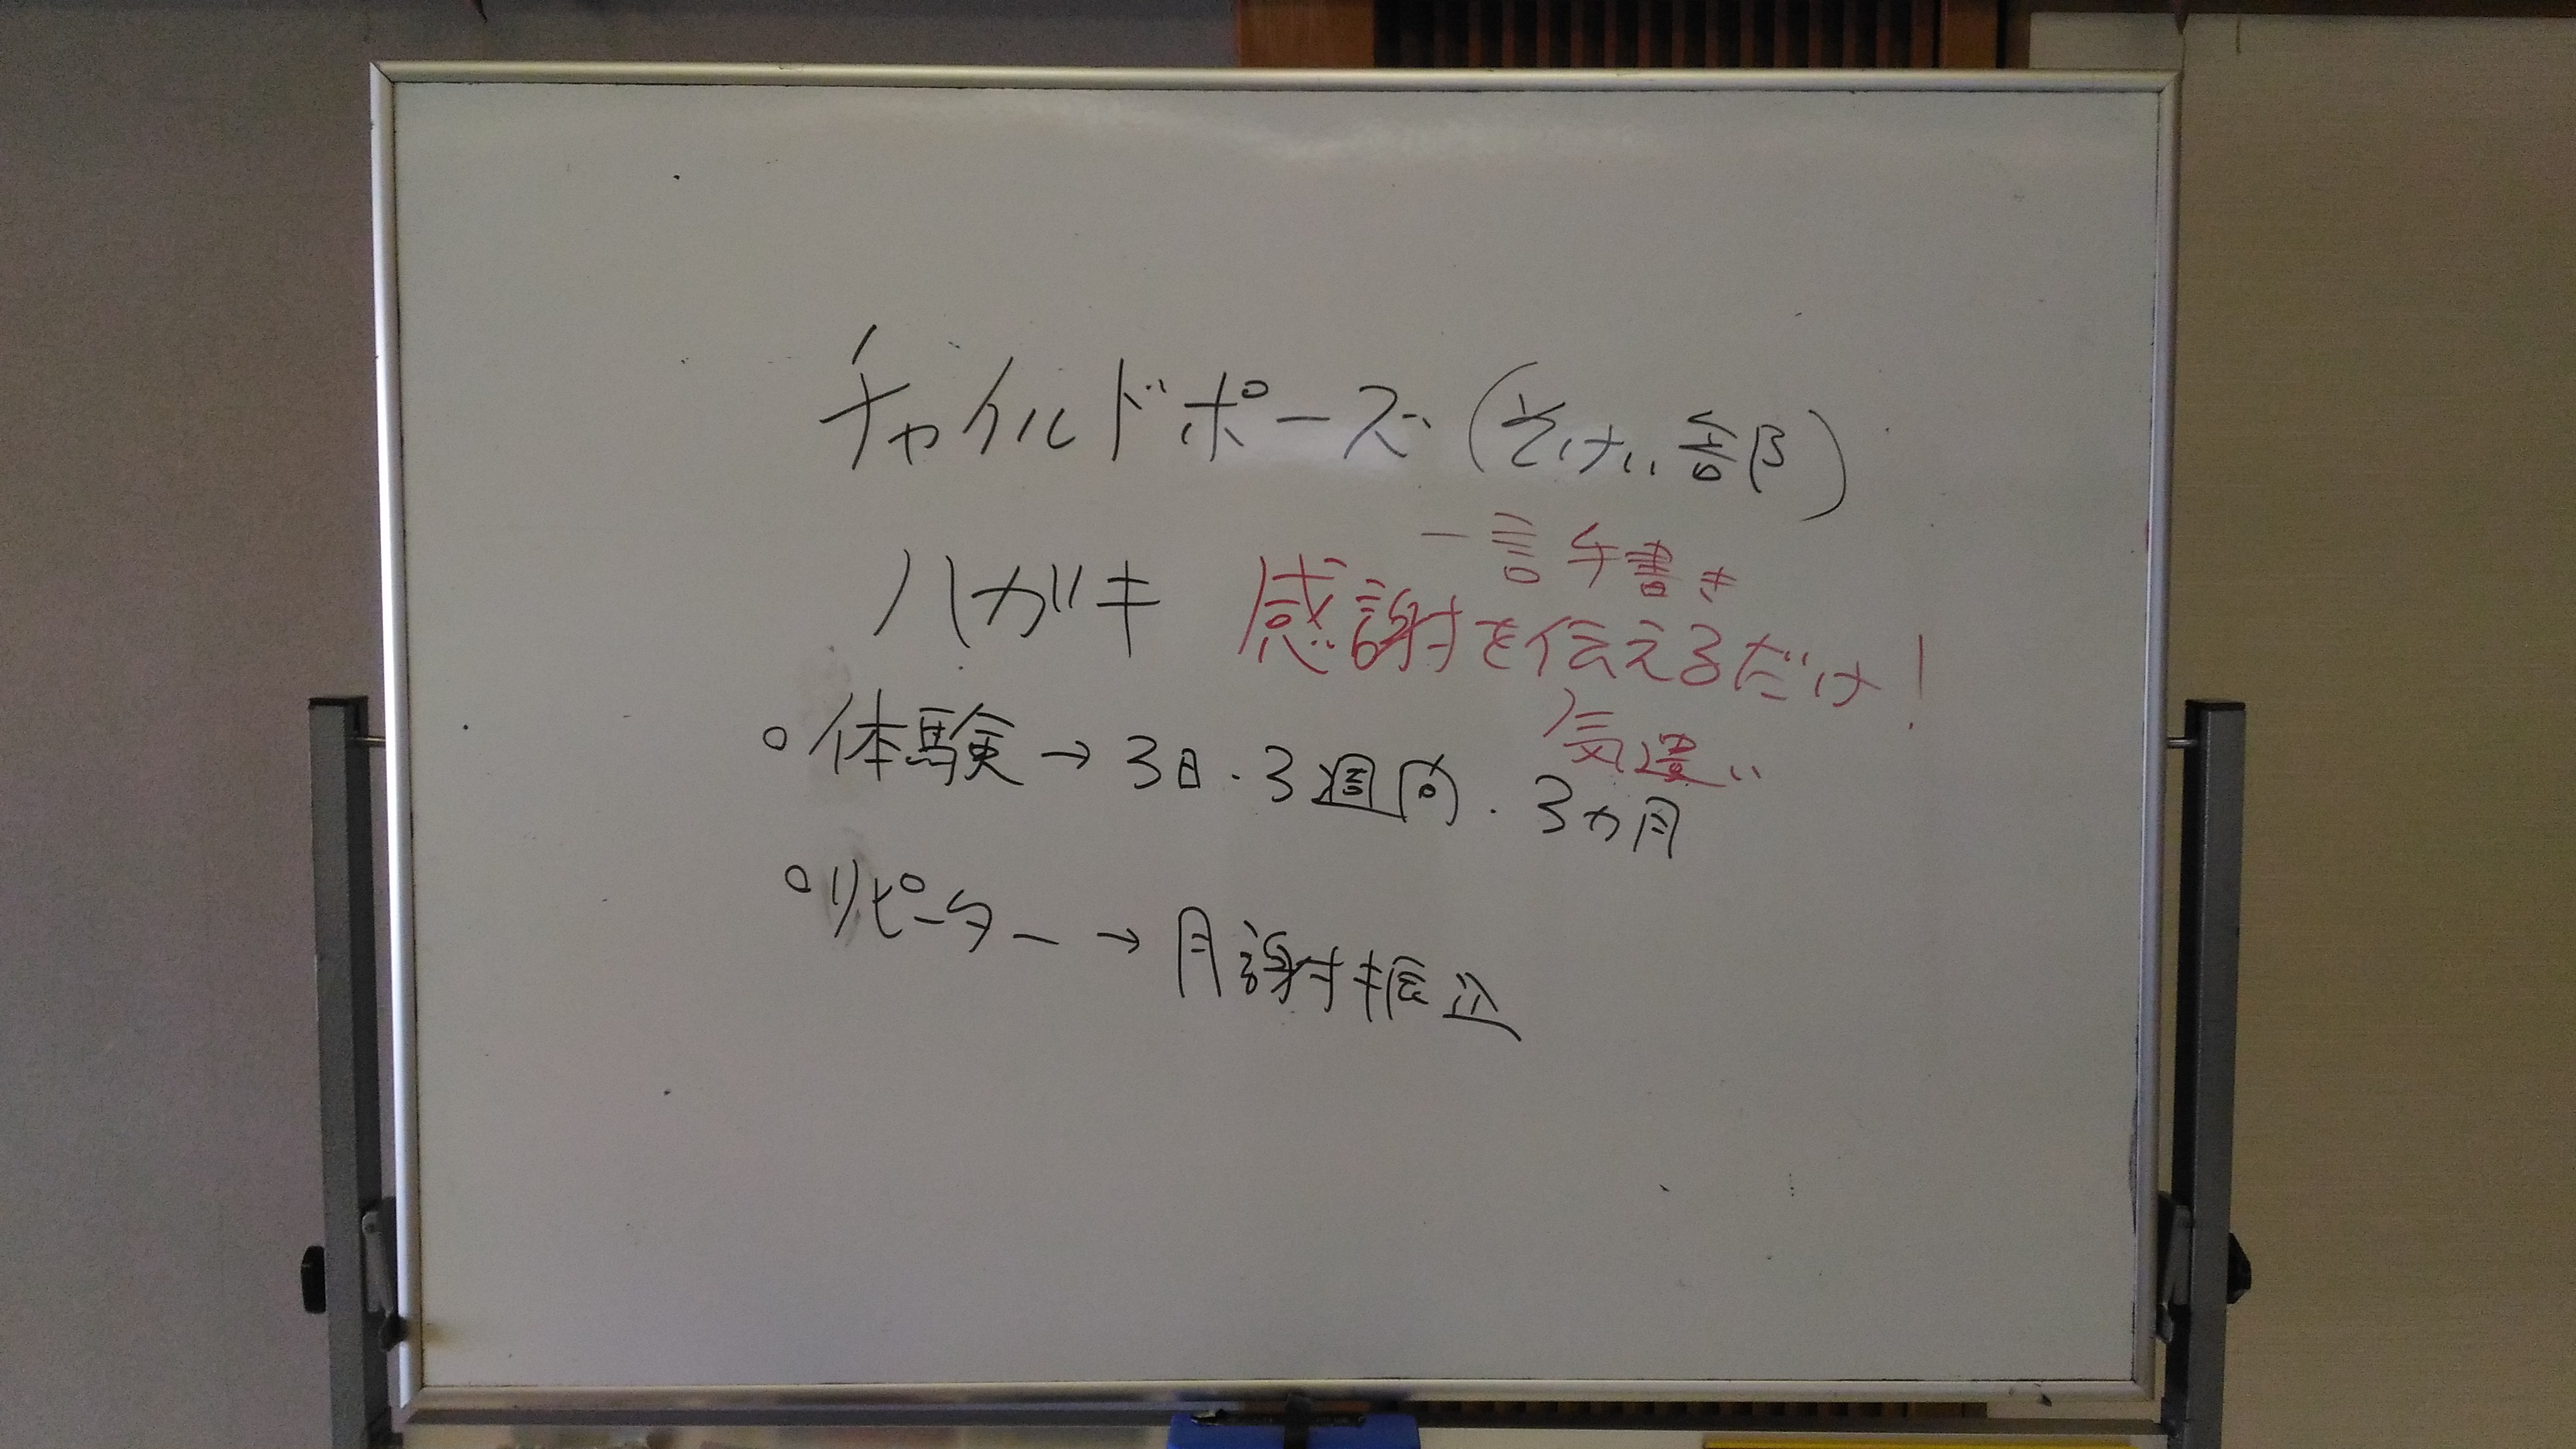 チャイルドポーズ(そけい部)
一言手書き
ハガキ 感謝を伝えるだけ!
気遣い
○体験→3日・3週間・3カ月
○リピーター→月謝振込